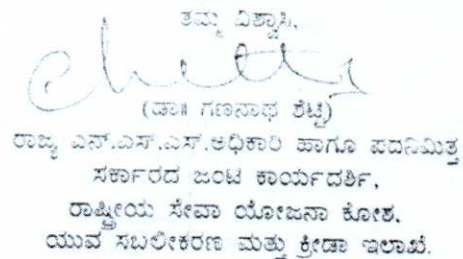 ತಮ್ಮ ವಿಶ್ವಾಸಿ,
(ಡಾ॥ ಗಣನಾಥ ಶೆಟ್ಟಿ)
ರಾಜ್ಯ ಎನ್.ಎಸ್.ಎಸ್.ಅಧಿಕಾರಿ ಹಾಗೂ ಪದನಿಮಿತ್ತ
ಸರ್ಕಾರದ ಜಂಟಿ ಕಾರ್ಯದರ್ಶಿ,
ರಾಷ್ಟ್ರೀಯ ಸೇವಾ ಯೋಜನಾ ಕೋಶ,
ಯುವ ಸಬಲೀಕರಣ ಮತ್ತು ಕ್ರೀಡಾ ಇಲಾಖೆ.